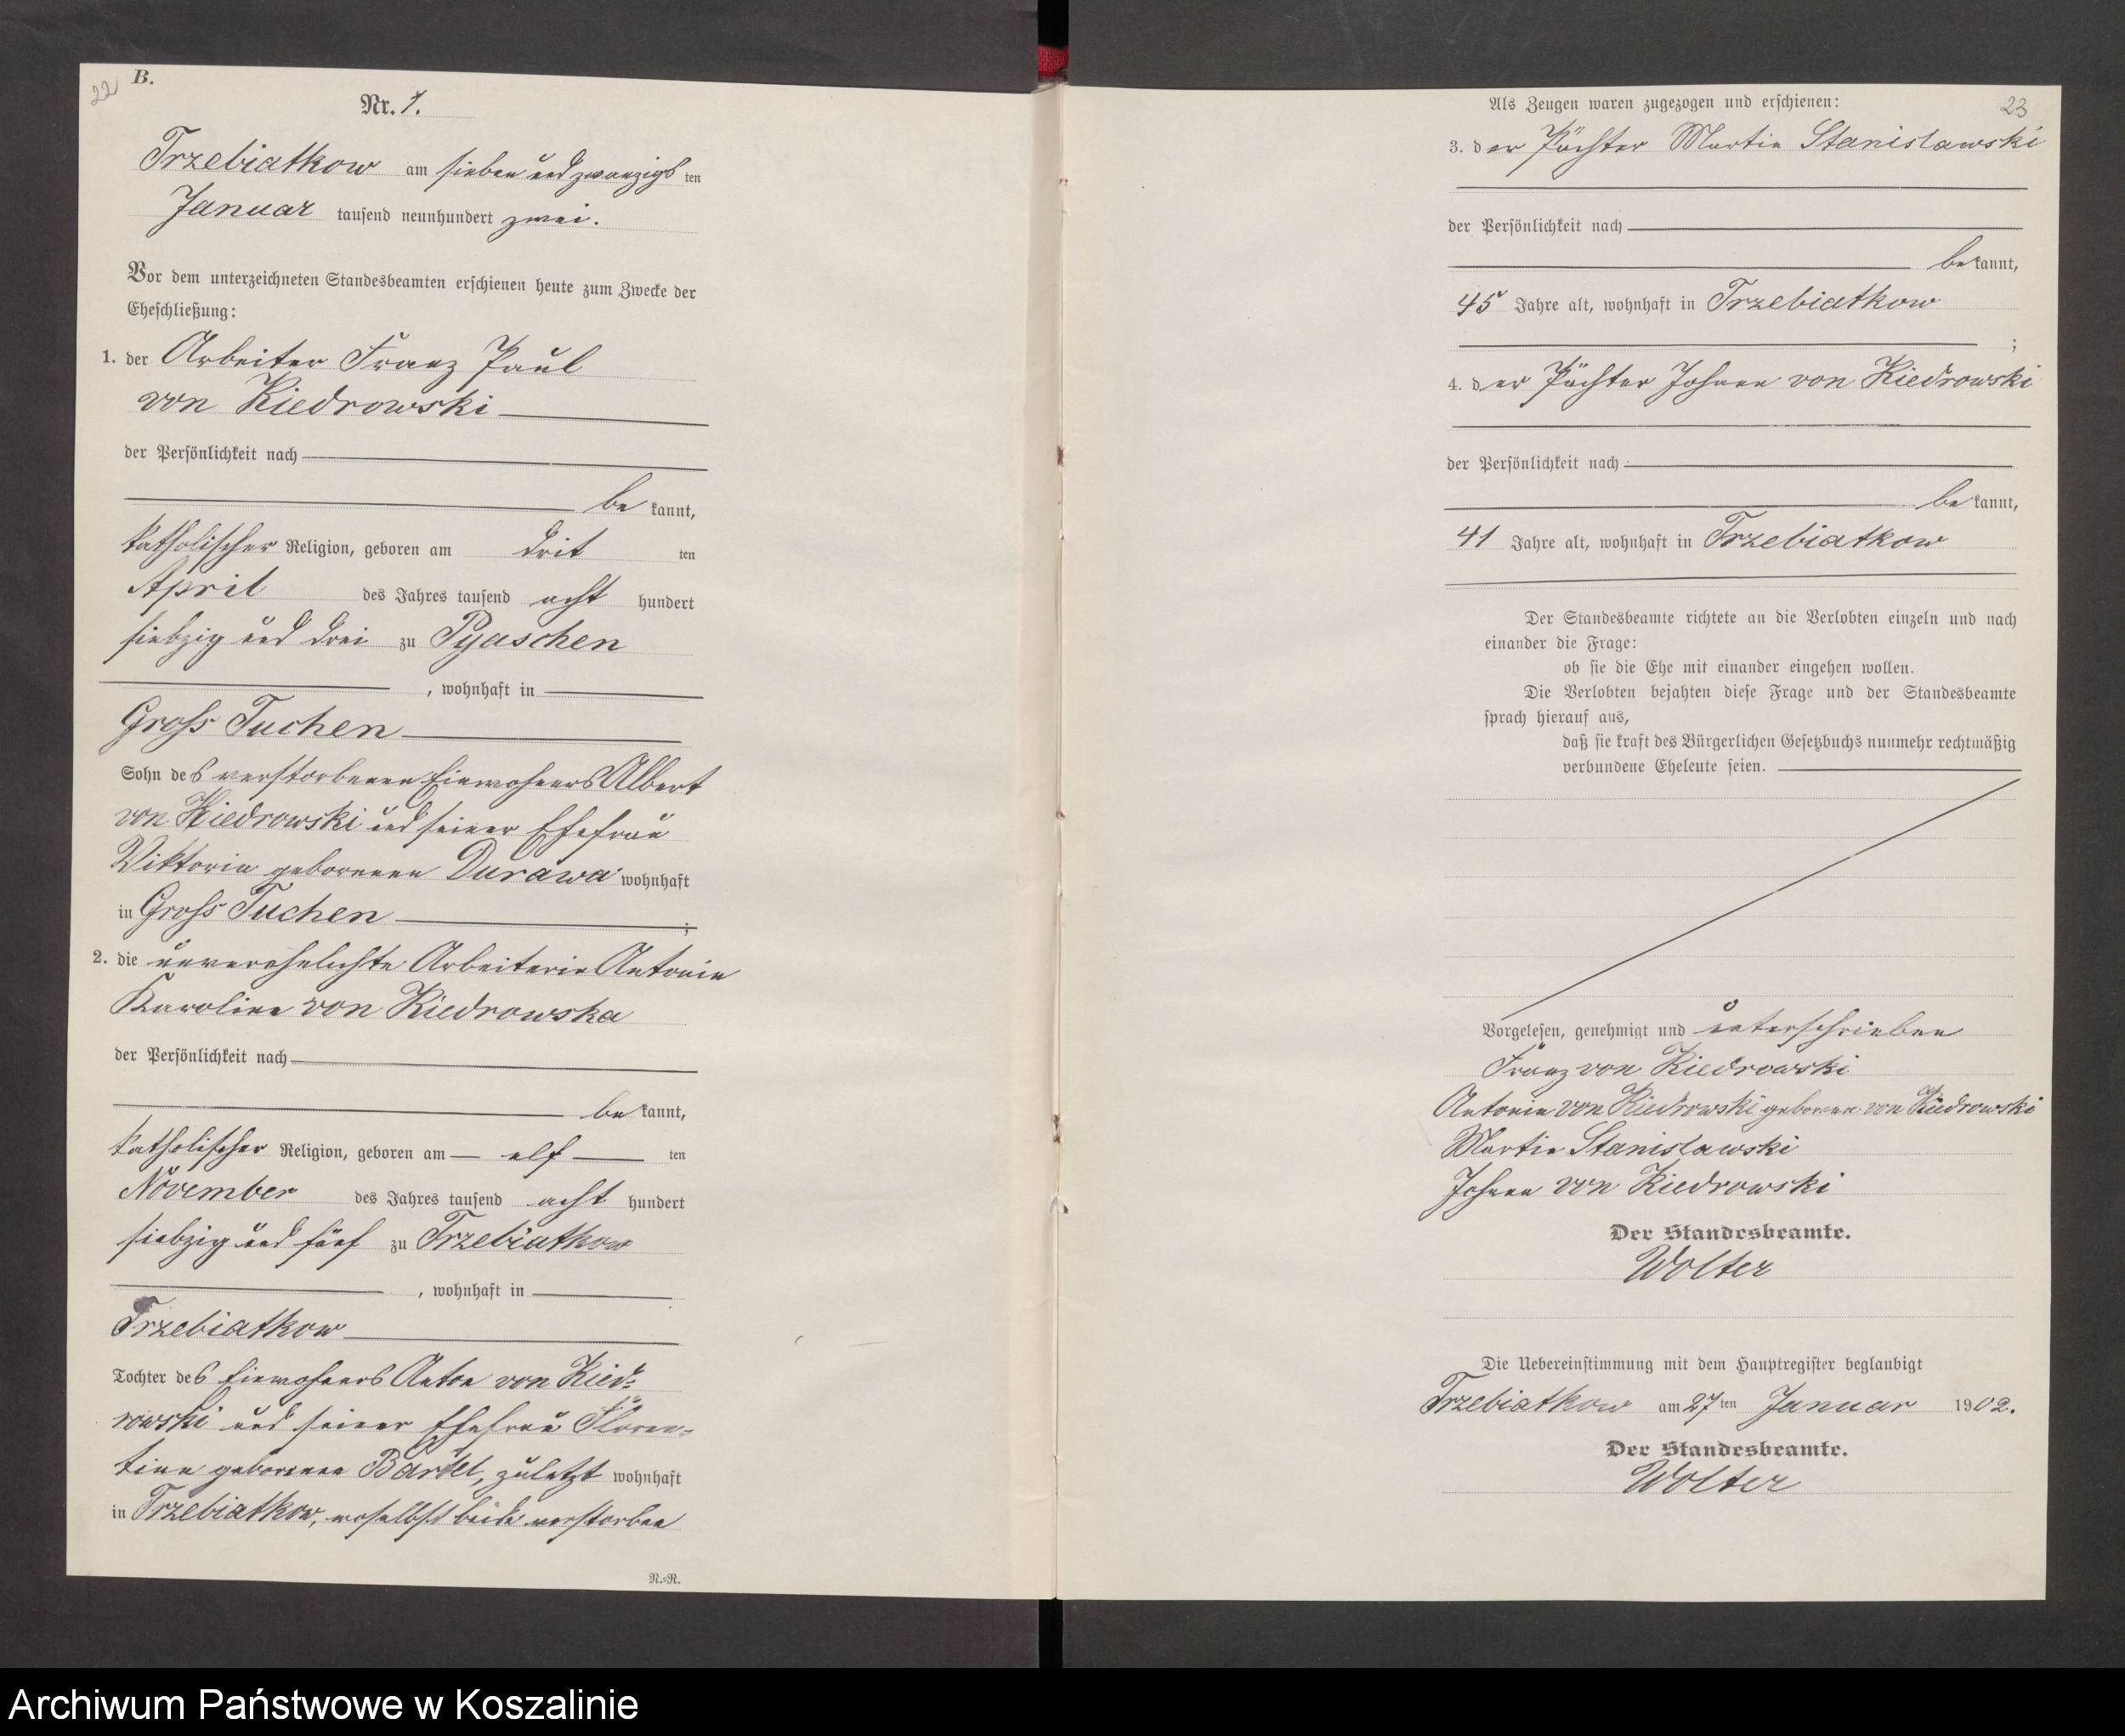 22
B.
Nr. 1.
Trzebiatkow am sieben und zwanzigs ten
Januar tausend neunhundert zwei.
Vor dem unterzeichneten Standesbeamten erschienen heute zum Zwecke der
Eheschließung:
1. der Arbeiter Franz Paul
von Kiedrowski
der Persönlichkeit nach
be kannt,
katholischer Religion, geboren am drit ten
April des Jahres tausend acht hundert
siebzig und drei zu Pyaschen
, wohnhaft in
Gross Tuchen
Sohn des verstorbenen Einwohners Albert
von Kiedrowski und seiner Ehefrau
Viktoria geborenen Durawa wohnhaft
in Gross Tuchen ;
2. die unverehelichte Arbeiterin Antonie
Karoline von Kiedrowska
der Persönlichkeit nach
be kannt,
katholischer Religion, geboren am elf ten
November des Jahres tausend acht hundert
siebzig und fünf zu Trzebiatkow
, wohnhaft in
Trzebiatkow
Tochter des Einwohners Anton von Kied-
rowski und seiner Ehefrau Floren-
tine geborenen Bartel, zuletzt wohnhaft
in Trzebiatkow, woselbst beide verstorben
N.-N.
23
Als Zeugen waren zugezogen und erschienen:
3. der Pächter Martin Stanislawski
der Persönlichkeit nach
be kannt,
45 Jahre alt, wohnhaft in Trzebiatkow
;
4. der Pächter Johann von Kiedrowski
der Persönlichkeit nach
be kannt,
41 Jahre alt, wohnhaft in Trzebiatkow
Der Standesbeamte richtete an die Verlobten einzeln und nach
einander die Frage:
ob sie die Ehe mit einander eingehen wollen.
Die Verlobten bejahten diese Frage und der Standesbeamte
sprach hierauf aus,
daß sie kraft des Bürgerlichen Gesetzbuchs nunmehr rechtmäßig
verbundene Eheleute seien.
Vorgelesen, genehmigt und unterschrieben
Franz von Kiedrowski
Antonie von Kiedrowski geborene von Kiedrowski
Martin Stanislawski
Johann von Kiedrowski
Der Standesbeamte.
Wolter
Die Uebereinstimmung mit dem Hauptregister beglaubigt
Trzebiatkow am 27 ten Januar 1902.
Der Standesbeamte.
Wolter
Archiwum Państwowe w Koszalinie